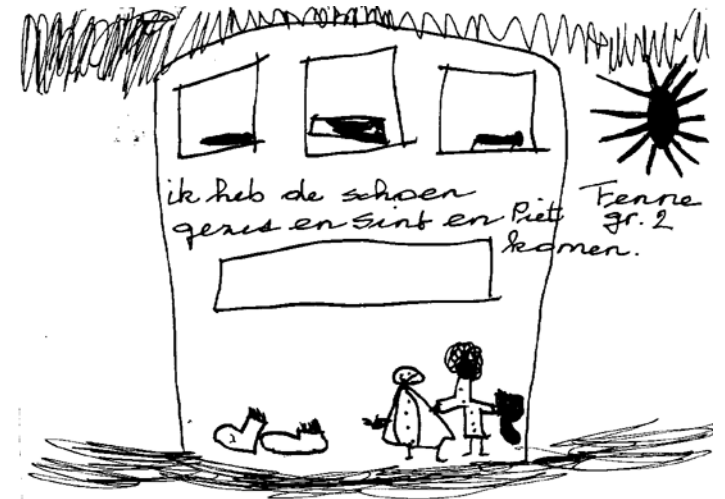 ik heb de schoen
gezet en Sint en Piet
komen.
Fenne
gr. 2